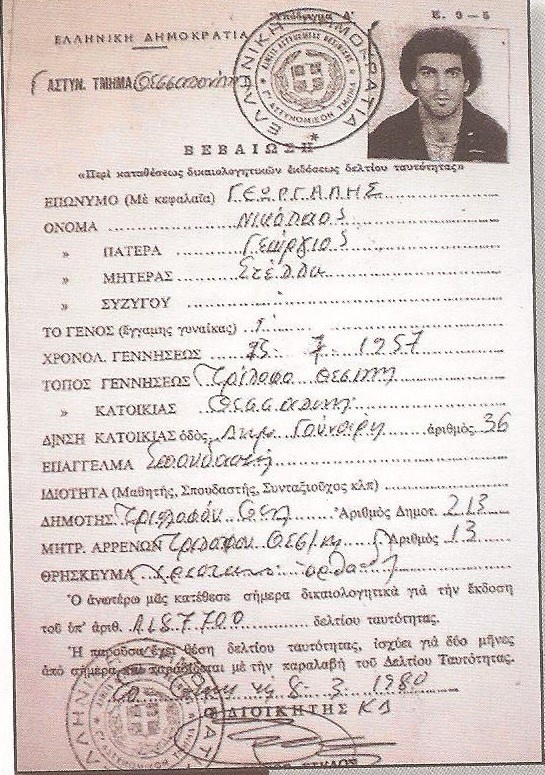 Ὑπόδειγμα Δ' Ε. 9-5
ΕΛΛΗΝΙΚΗ ΔΗΜΟΚΡΑΤΙΑ
ΕΛΛΗΝΙΚΗ ΔΗΜΟΚΡΑΤΙΑ
ΑΣΤΥΝ. ΤΜΗΜΑ Θεσσαλονίκη
ΒΕΒΑΙΩΣΗ
«Περὶ καταθέσεως δικαιολογητικῶν ἐκδόσεως δελτίου ταυτότητας»
ΕΠΩΝΥΜΟ (Μὲ κεφαλαῖα) ΓΕΩΡΓΑΛΗΣ
ΟΝΟΜΑ Νικόλαος
» ΠΑΤΕΡΑ Γεώργιος
» ΜΗΤΕΡΑΣ Στέλλα
» ΣΥΖΥΓΟΥ
ΤΟ ΓΕΝΟΣ (ἔγγαμης γυναίκας)
ΧΡΟΝΟΛ. ΓΕΝΝΗΣΕΩΣ 25 7 1957
ΤΟΠΟΣ ΓΕΝΝΗΣΕΩΣ Τρίλοφο Θεσ/νίκη
» ΚΑΤΟΙΚΙΑΣ Θεσσαλονίκη
Δ)ΝΣΗ ΚΑΤΟΙΚΙΑΣ ὁδὸς Δημ. Γούναρη ἀριθμὸς 36
ΕΠΑΓΓΕΛΜΑ Σπουδαστής
ΙΔΙΟΤΗΤΑ (Μαθητής, Σπουδαστής, Συνταξιοῦχος κλπ)
ΔΗΜΟΤΗΣ Τριλόφου Θεσ Ἀριθμὸς Δημοτ. 213
ΜΗΤΡ. ΑΡΡΕΝΩΝ Τριλόφου Θεσ/νίκη Ἀριθμὸς 13
ΘΡΗΣΚΕΥΜΑ
Ὁ ἀνωτέρω μᾶς κατέθεσε σήμερα δικαιολογητικὰ γιὰ τὴν ἔκδοση
τοῦ ὑπ' ἀριθ. Λ187700 δελτίου ταυτότητας.
Ἡ παροῦσα ἔχει θέση δελτίου ταυτότητας, ἰσχύει γιὰ δύο μῆνες
ἀπὸ σήμερα καὶ παραδίδεται μὲ τὴν παραλαβὴ τοῦ Δελτίου Ταυτότητας.
8. 3. 1980
Ο ΔΙΟΙΚΗΤΗΣ ΚΔ